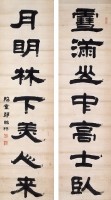 雪滿山中高士臥
月明林下美人来